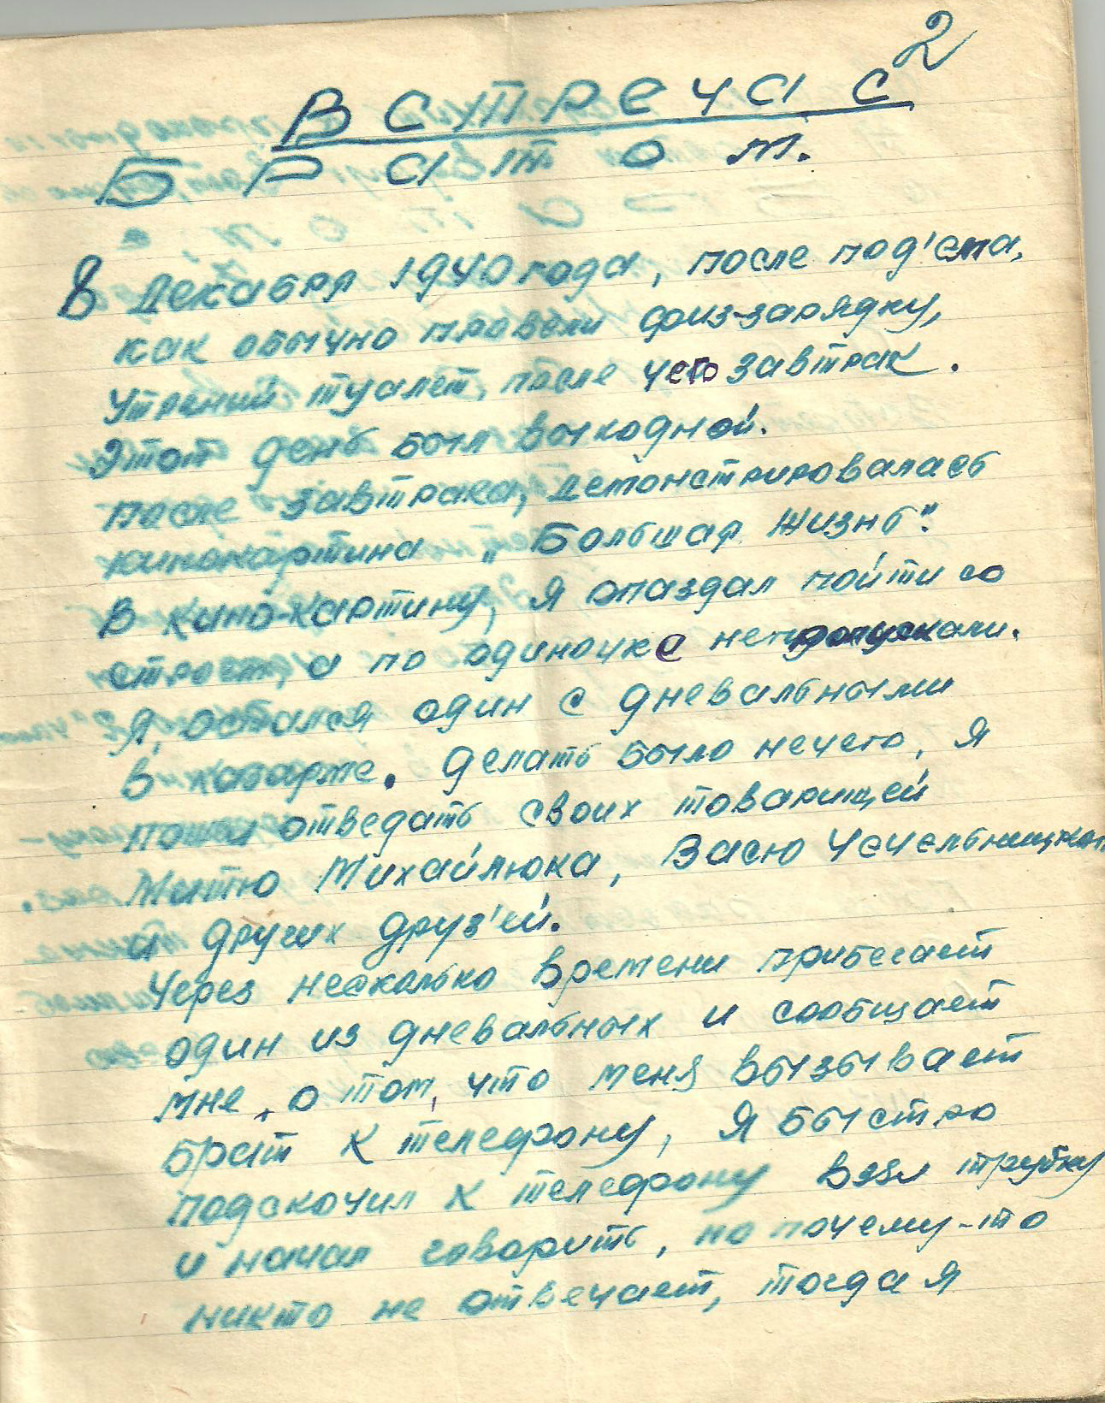 2
Встреча с
Братом.
8 Декабря 1940 года, после под'ема,
как обычно провели физ-зарядку,
утрений туалет, после чего завтрак.
Этот день был выходной.
После завтрака, демонстрировалась
кинокартина „Большая жизнь".
В кино-картину, я опаздал пойти со
строем, а по одиночке не допускали.
Я, остался один с дневальными
в казарме. Делать было нечего, я
пошел отведать своих товарищей
Митю Михайлюка, Васю Чечельницкого
и других друз'ей.
Через несколько времени прибегает
один из дневальных и сообщает
мне, о том, что меня вызывает
брат к телефону, я быстро
подскочил к телефону взял трубку
и начал говорить, но почему-то
никто не отвечает, тогда я